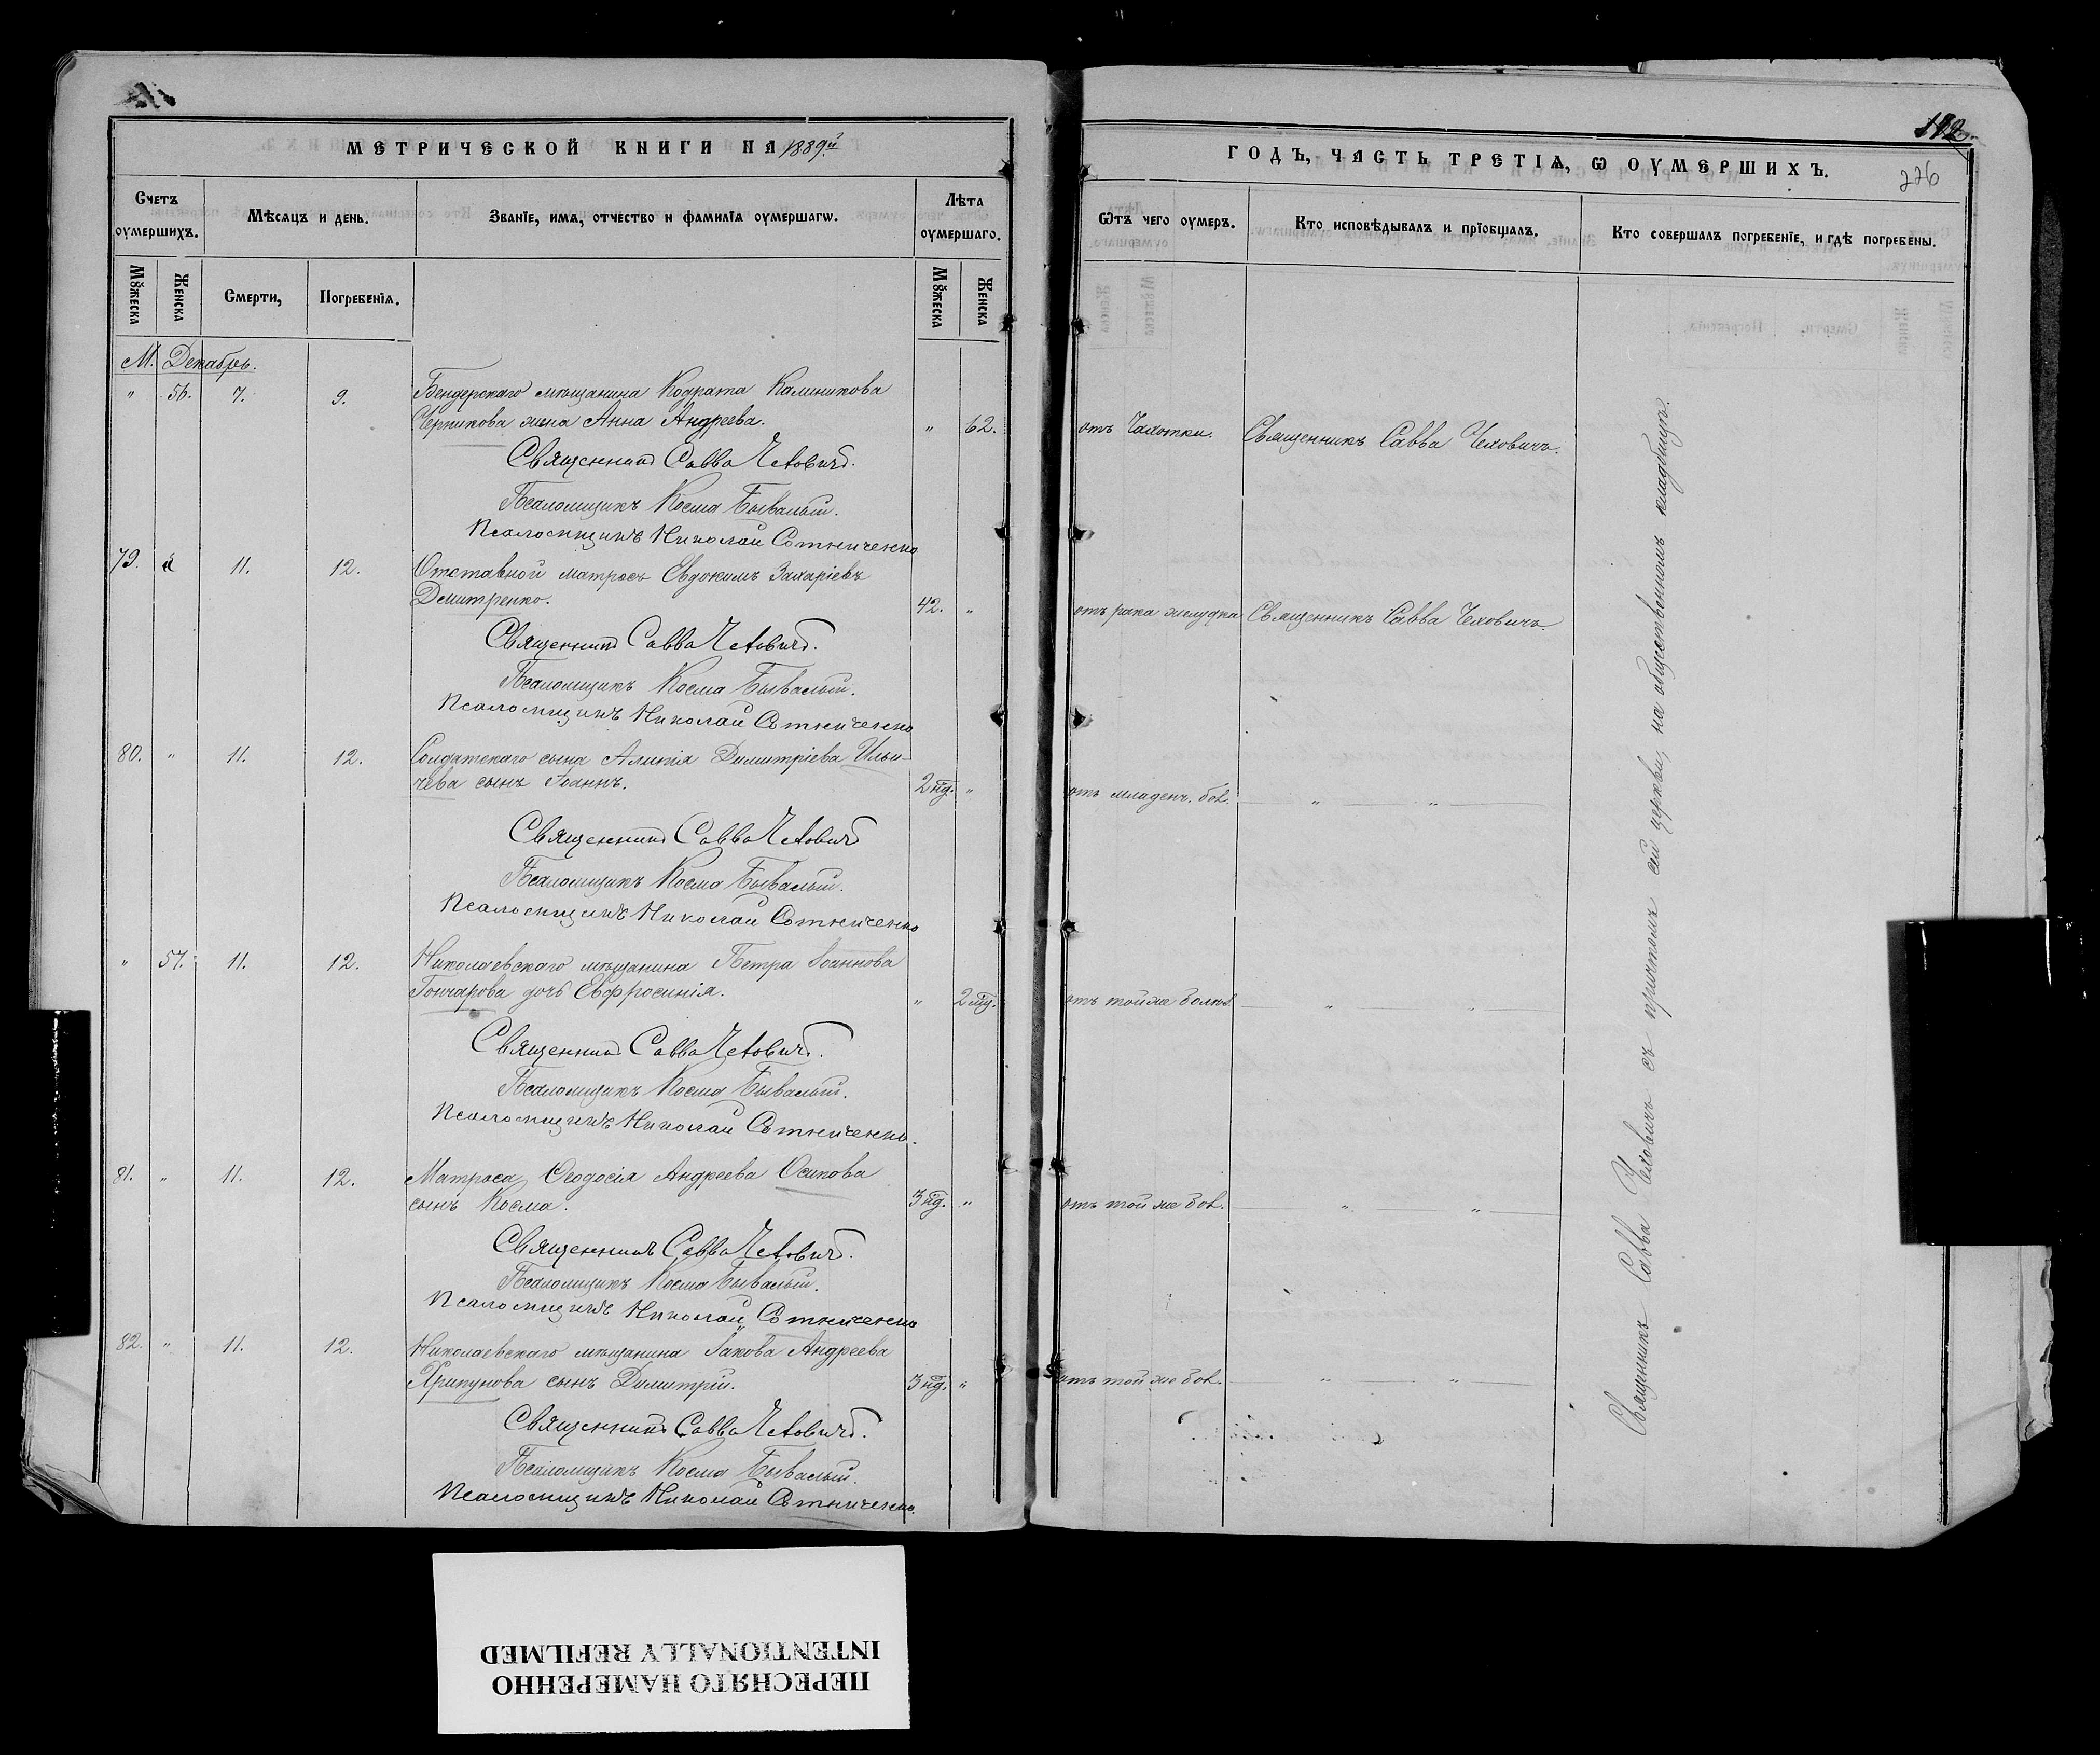 МЕТРИЧЕСКОЙ КНИГИ НА 1889й
Счетъ оумершихъ.
Мѣсяцъ и день.
Званїе, имя, отчество и фамилїя оумершагѡ.
Лѣта оумершаго.
Мꙋжеска
Женска
Смерти,
Погребенїя.
Мꙋжеска
Женска
М. Декабрь.
" 56. 7. 9. Бендерскаго мѣщанина Кодрата Калиникова
Черникова жена Анна Андреева. " 62.
Священникъ Савва Чеховичъ.
Псаломщикъ Косма Бывалый.
Псаломщикъ Николай Сотниченко
79. " 11. 12. Отставной матросъ Евдокимъ Захаріевъ
Демитренко. 42. "
Священникъ Савва Чеховичъ.
Псаломщикъ Косма Бывалый.
Псаломщикъ Николай Сотниченко
80. " 11. 12. Солдатскаго сына Алипія Димитріева Ильи-
чева сынъ Іоаннъ. 2 нд. "
Священникъ Савва Чеховичъ
Псаломщикъ Косма Бывалый.
Псаломщикъ Николай Сотниченко
" 57. 11. 12. Николаевскаго мѣщанина Петра Іоаннова
Гончарова дочь Евфросинія. " 2 нд.
Священникъ Савва Чеховичъ.
Псаломщикъ Косма Бывалый.
Псаломщикъ Николай Сотниченко.
81. " 11. 12. Матроса Ѳеодосія Андреева Осипова
сынъ Косма. 3 нд. "
Священникъ Савва Чеховичъ.
Псаломщикъ Косма Бывалый.
Псаломщикъ Николай Сотниченко
82. " 11. 12. Николаевскаго мѣщанина Іакова Андреева
Хрипунова сынъ Димитрій. 3 нд. "
Священникъ Савва Чеховичъ.
Псаломщикъ Косма Бывалый.
Псаломщикъ Николай Сотниченко.
ГОДЪ, ЧАСТЬ ТРЕТІѦ, Ѡ ОУМЕРШИХЪ.
226
Ѿтъ чего оумеръ.
Кто исповѣдывалъ и прїобщалъ.
Кто совершалъ погребенїе, и гдѣ погребены.
отъ Чахотки. Священникъ Савва Чеховичъ.
отъ рака желудка Священникъ Савва Чеховичъ.
отъ младенч. бол. " "
отъ той же болѣз. " "
отъ той же бол. " "
отъ той же бол. " "
Священникъ Савва Чеховичъ съ причтомъ сей церкви, на общественномъ кладбищѣ.
ПЕРЕСНЯТО НАМЕРЕННО
INTENTIONALLY REFILMED